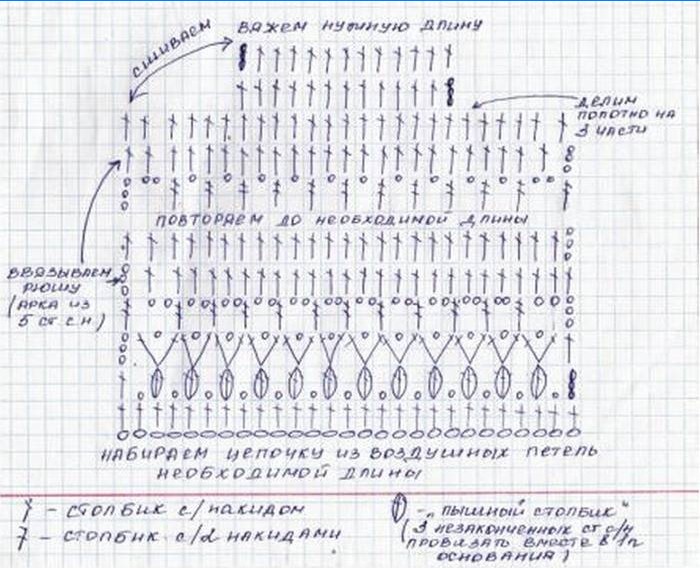 ВЯЖЕМ НУЖНУЮ ДЛИНУ
СШИВАЕМ
ДЕЛИМ
ПОЛОТНО НА
3 ЧАСТИ
ПОВТОРЯЕМ ДО НЕОБХОДИМОЙ ДЛИНЫ
ВВЯЗЫВАЕМ
РЮШУ
(АРКА ИЗ
5 СТ. С Н)
НАБИРАЕМ ЦЕПОЧКУ ИЗ ВОЗДУШНЫХ ПЕТЕЛЬ
НЕОБХОДИМОЙ ДЛИНЫ
- СТОЛБИК С/НАКИДОМ
- СТОЛБИК С/2 НАКИДАМИ
- „ПЫШНЫЙ СТОЛБИК"
(3 НЕЗАКОНЧЕННЫХ СТ С/Н
ПРОВЯЗАТЬ ВМЕСТЕ В 1П
ОСНОВАНИЯ)